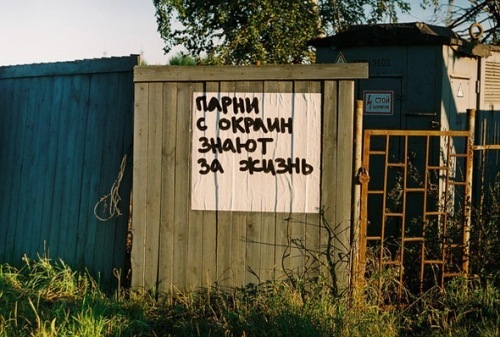 ПАРНИ
С ОКРАИН
ЗНАЮТ
ЗА ЖИЗНЬ
СТОЙ